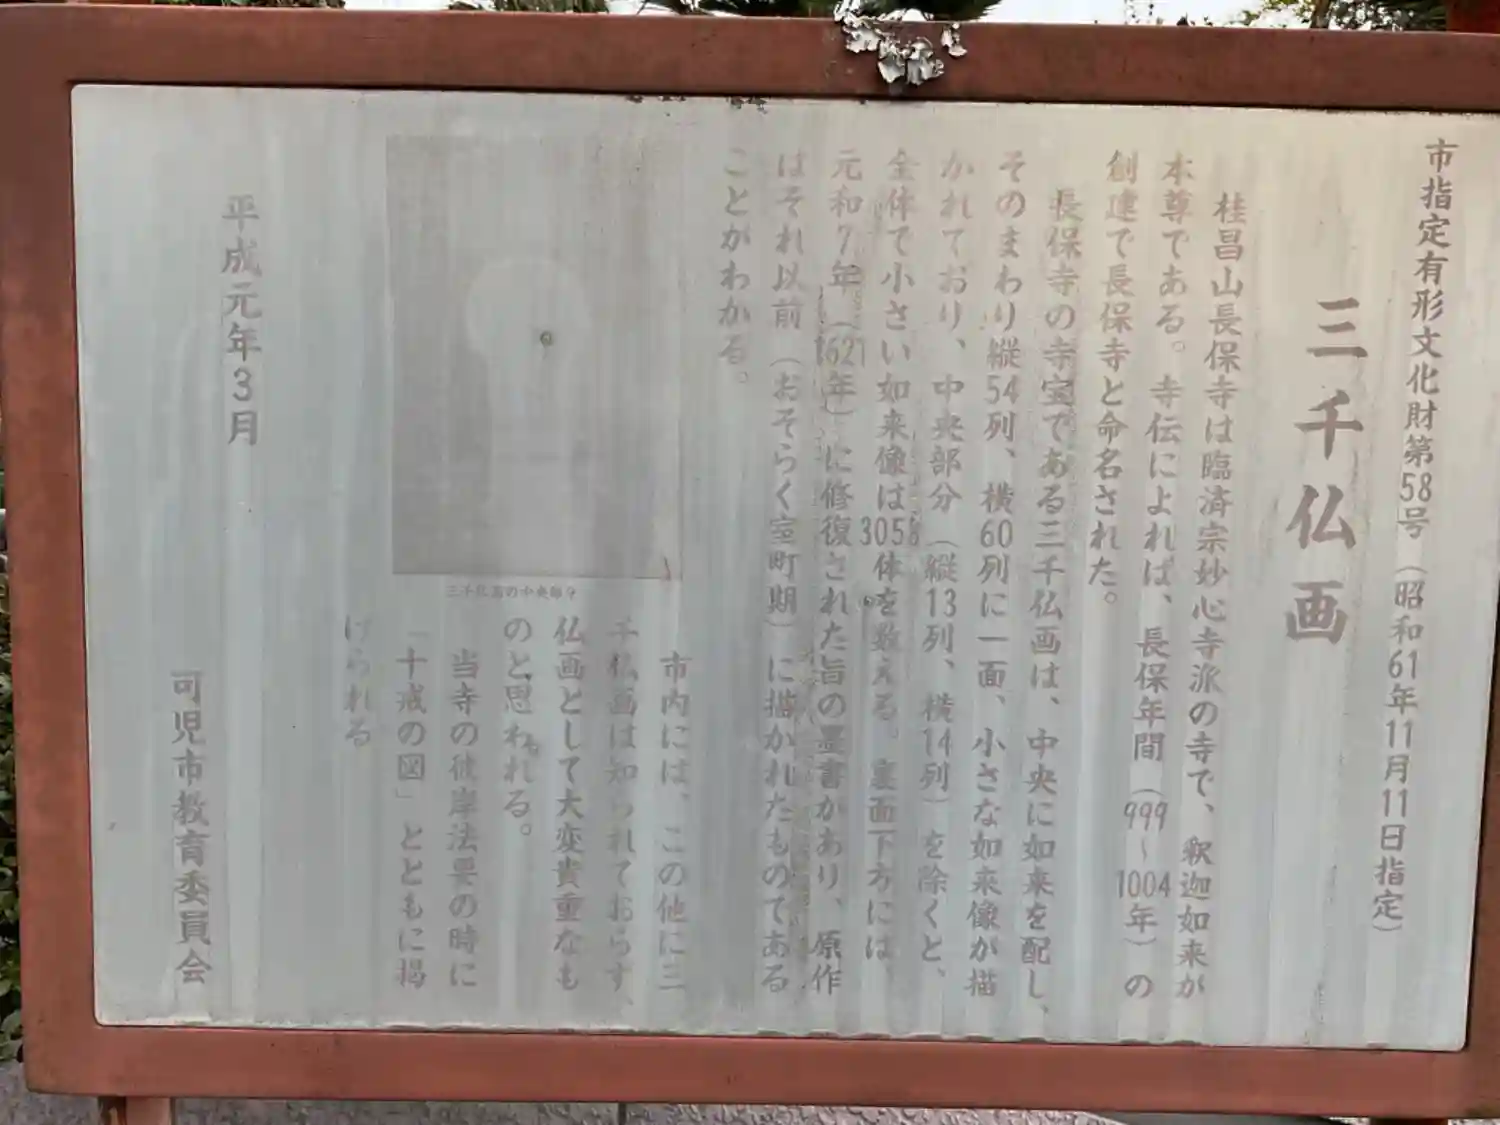 市指定有形文化財第58号(昭和61年11月11日指定)
三千仏画
桂昌山長保寺は臨済宗妙心寺派の寺で、釈迦如来が
本尊である。寺伝によれば、長保年間(999~1004年)の
創建で長保寺と命名された。
長保寺の寺宝である三千仏画は、中央に如来を配し、
そのまわり縦54列、横60列に一面、小さな如来像が描
かれており、中央部分(縦13列、横14列)を除くと、
全体で小さい如来像は3058体を数える。裏面下方には、
元和7年(1621年)に修復された旨の墨書があり、原作
はそれ以前(おそらく室町期)に描かれたものである
ことがわかる。
三千仏画の中央部分
市内には、この他に三
千仏画は知られておらず、
仏画として大変貴重なも
のと思われる。
当寺の彼岸法要の時に
「十戒の図」とともに掲
げられる
平成元年3月
可児市教育委員会